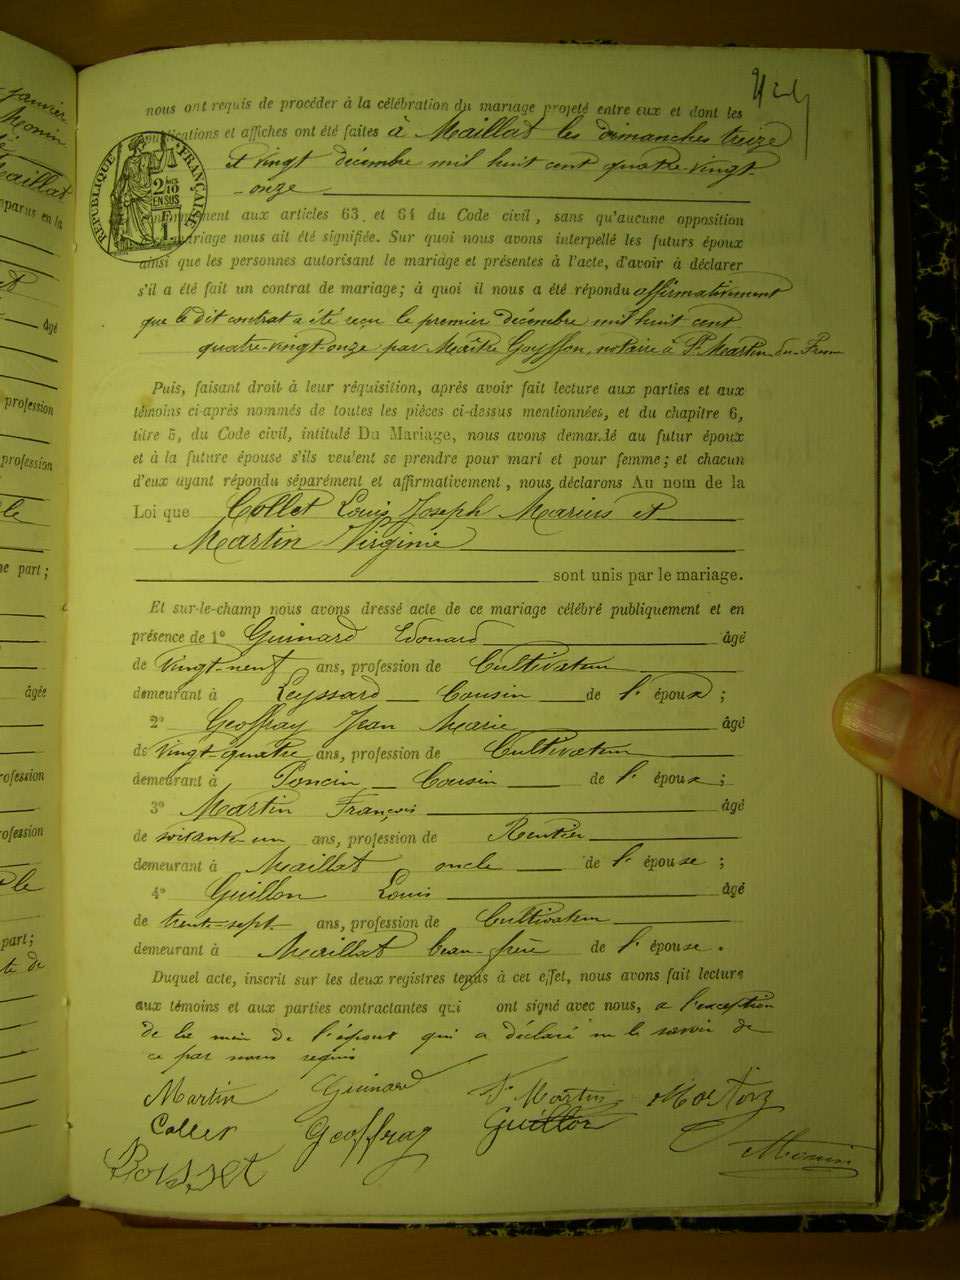 nous ont requis de procéder à la célébration du mariage projeté entre eux et dont les
publications et affiches ont été faites à Maillat les dimanches treize
et vingt décembre mil huit cent quatre-vingt
-onze
conformément aux articles 63 et 64 du Code civil, sans qu'aucune opposition
au mariage nous ait été signifiée. Sur quoi nous avons interpellé les futurs époux
ainsi que les personnes autorisant le mariage et présentes à l'acte, d'avoir à déclarer
s'il a été fait un contrat de mariage; à quoi il nous a été répondu affirmativement
que le dit contrat a été reçu le premier décembre mil huit cent
quatre-vingt-onze par Maître Goyffon, notaire à St Martin du Frene
Puis, faisant droit à leur réquisition, après avoir fait lecture aux parties et aux
témoins ci-après nommés de toutes les pièces ci-dessus mentionnées, et du chapitre 6,
titre 5, du Code civil, intitulé Du Mariage, nous avons demandé au futur époux
et à la future épouse s'ils veulent se prendre pour mari et pour femme; et chacun
d'eux ayant répondu séparément et affirmativement, nous déclarons Au nom de la
Loi que Collet Louis Joseph Marius et
Martin Virginie
sont unis par le mariage.
Et sur-le-champ nous avons dressé acte de ce mariage célébré publiquement et en
présence de 1° Guinard Edouard âgé
de vingt-neuf ans, profession de Cultivateur
demeurant à Leyssard Cousin de l' époux ;
2° Geoffray Jean Marie âgé
de vingt-quatre ans, profession de Cultivateur
demeurant à Poncin Cousin de l' époux ;
3° Martin François âgé
de soixante-un ans, profession de Rentier
demeurant à Maillat oncle de l' épouse ;
4° Guillon Louis âgé
de trente-sept ans, profession de Cultivateur
demeurant à Maillat beau-frère de l' épouse .
Duquel acte, inscrit sur les deux registres tenus à cet effet, nous avons fait lecture
aux témoins et aux parties contractantes qui ont signé avec nous, a l'exception
de la mère de l'époux qui a déclaré ne le savoir de
ce par nous requis
Martin Guinard F. Martin Martin
Collet Geoffray Guillon
Monin
RÉPUBLIQUE FRANÇAISE
2/10 EN SUS